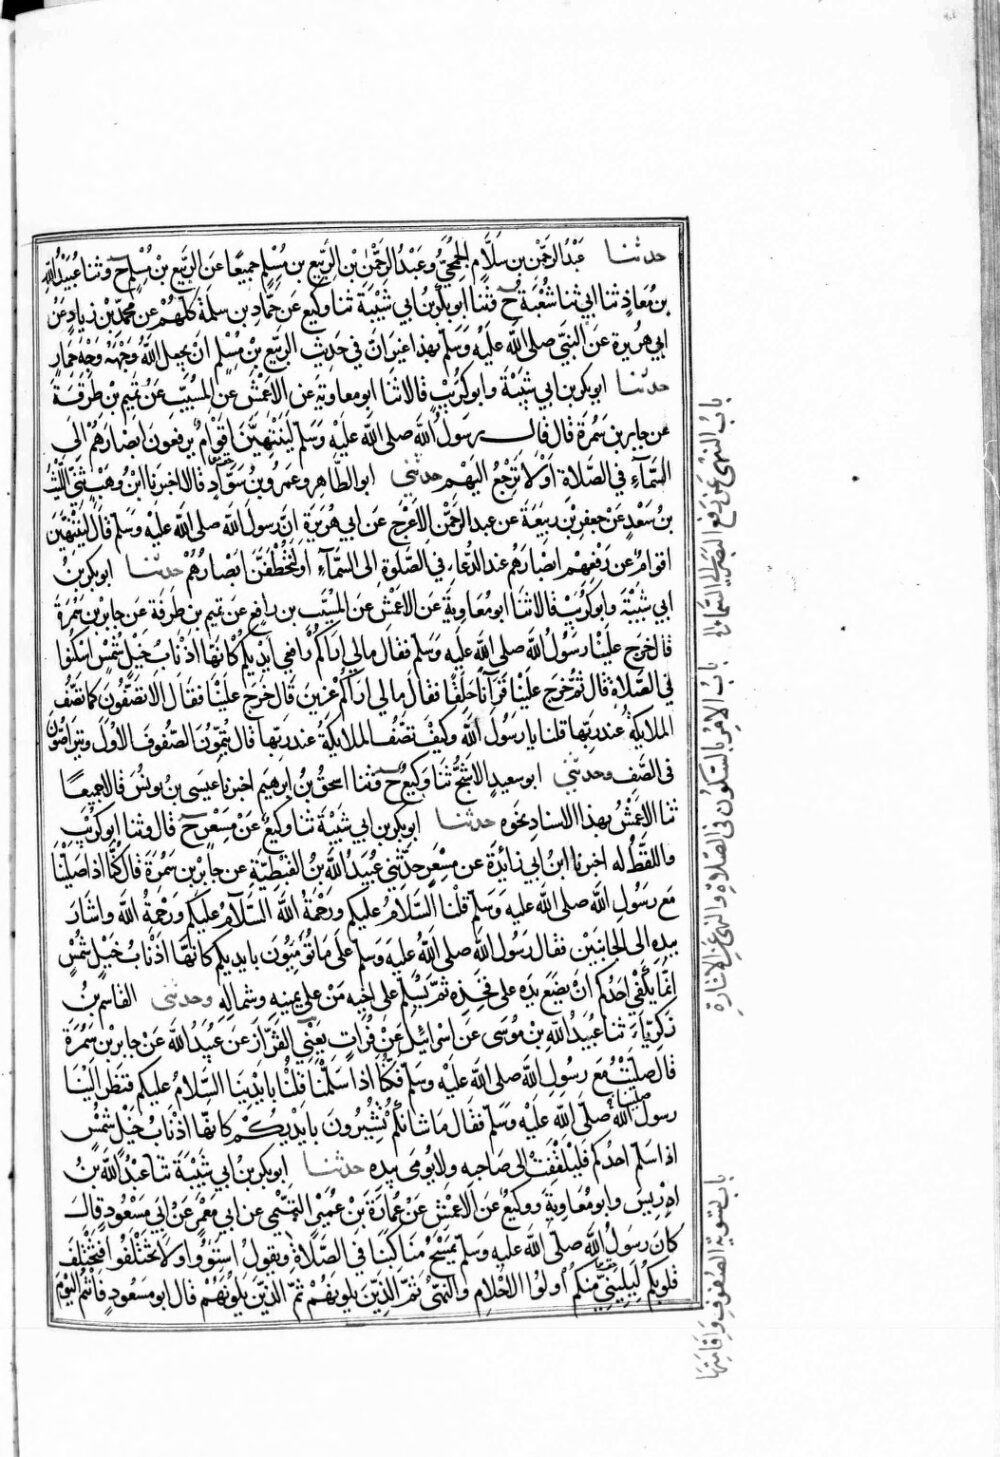 حدثنا عبد الرحمن بن سلام الجمحي وعبد الرحمن بن الربيع بن مسلم جميعا عن الربيع بن مسلم ح وثنا عبيد الله
بن معاذ ثنا ابي ثنا شعبة ح وثنا ابو بكر بن ابي شيبة ثنا وكيع عن حماد بن سلمة كلهم عن محمد بن زياد عن
ابي هريرة عن النبي صلى الله عليه وسلم بهذا غير ان في حديث الربيع بن مسلم ان يجعل الله وجهه وجه حمار
حدثنا ابو بكر بن ابي شيبة وابو كريب قالا ثنا ابو معاوية عن الاعمش عن المسيب عن تميم بن طرفة
عن جابر بن سمرة قال قال رسول الله صلى الله عليه وسلم لينتهين اقوام يرفعون ابصارهم الى
السماء في الصلاة اولا ترجع اليهم حدثني ابو الطاهر وعمرو بن سواد قالا اخبرنا ابن وهب ثني الليث
بن سعد عن جعفر بن ربيعة عن عبد الرحمن الاعرج عن ابي هريرة ان رسول الله صلى الله عليه وسلم قال لينتهين
اقوام عن رفعهم ابصارهم عند الدعاء في الصلوة الى السماء او لتخطفن ابصارهم حدثنا ابو بكر بن
ابي شيبة وابو كريب قالا ثنا ابو معاوية عن الاعمش عن المسيب بن رافع عن تميم بن طرفة عن جابر بن سمرة
قال خرج علينا رسول الله صلى الله عليه وسلم فقال مالي اراكم رافعي ايديكم كانها اذناب خيل شمس اسكنوا
في الصلاة قال ثم خرج علينا فرآنا حلقا فقال مالي اراكم عزين قال خرج علينا فقال الا تصفون كما تصف
الملايكة عند ربها قلنا يا رسول الله وكيف تصف الملايكة عند ربها قال يتمون الصفوف الاول ويتراصون
في الصف وحدثني ابو سعيد الاشج ثنا وكيع ح وثنا اسحق بن ابرهيم اخبرنا عيسى بن يونس قالا جميعا
ثنا الاعمش بهذا الاسناد نحوه حدثنا ابو بكر بن ابي شيبة ثنا وكيع عن مسعر ح قال وثنا ابو كريب
واللفظ له اخبرنا ابن ابي زائدة عن مسعر حدثني عبيد الله بن القبطية عن جابر بن سمرة قال كنا اذا صلينا
مع رسول الله صلى الله عليه وسلم قلنا السلام عليكم ورحمة الله السلام عليكم ورحمة الله واشار
بيده الى الجانبين فقال رسول الله صلى الله عليه وسلم على ما تومئون بايديكم كانها اذناب خيل شمس
انما يكفي احدكم ان يضع يده على فخذه ثم يسلم على اخيه من على يمينه وشماله وحدثني القاسم بن
زكرياء ثنا عبيد الله بن موسى عن اسرائيل عن فرات يعني القزاز عن عبيد الله عن جابر بن سمرة
قال صليت مع رسول الله صلى الله عليه وسلم فكنا اذا سلمنا قلنا بايدينا السلام عليكم فنظر الينا
رسول الله صلى الله عليه وسلم فقال ما شانكم تشيرون بايديكم كانها اذناب خيل شمس
اذا سلم احدكم فليلتفت الى صاحبه ولا يومي بيده حدثنا ابو بكر بن ابي شيبة ثنا عبد الله بن
ادريس وابو معاوية ووكيع عن الاعمش عن عمارة بن عمير التيمي عن ابي معمر عن ابي مسعود قال
كان رسول الله صلى الله عليه وسلم يمسح مناكبنا في الصلاة ويقول استووا ولا تختلفوا فتختلف
قلوبكم ليليني منكم اولوا الاحلام والنهى ثم الذين يلونهم ثم الذين يلونهم قال ابو مسعود فانتم اليوم
باب النهي عن رفع البصر الى السماء
باب الامر بالسكون في الصلاة والنهي عن الاشارة
باب تسوية الصفوف واقامتها